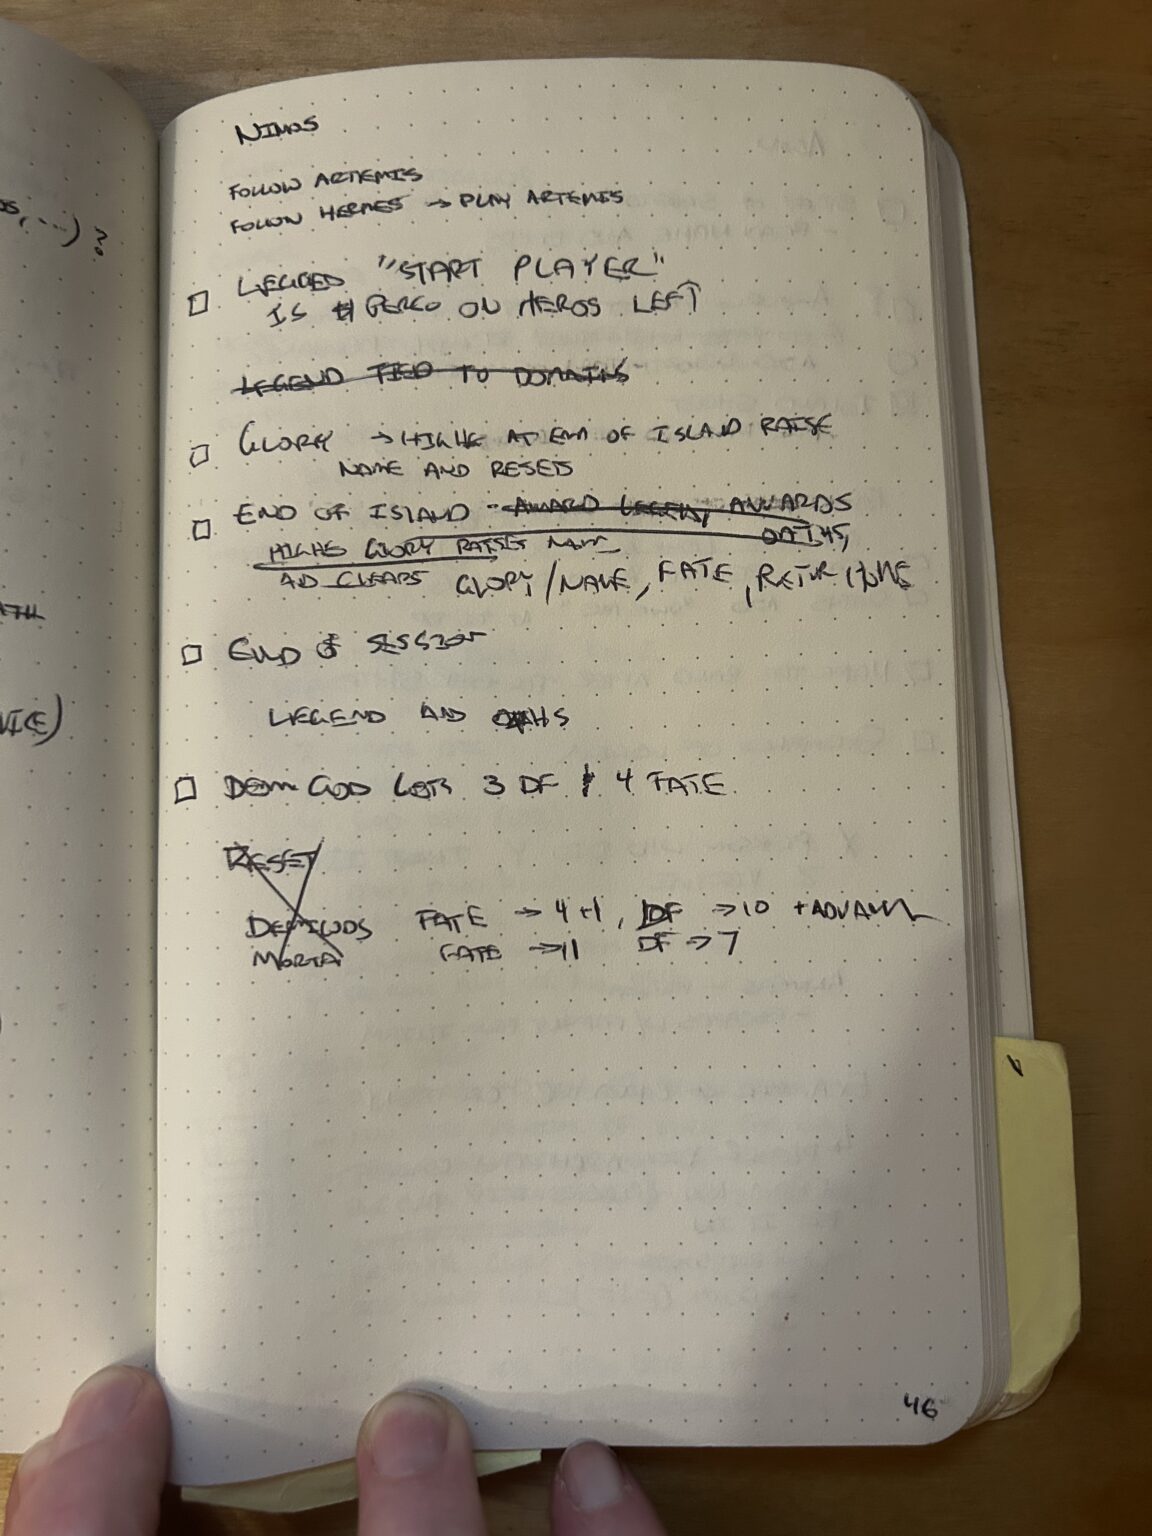 NIMOS
FOLLOW ARTEMIS
FOLLOW HERMES → PLAY ARTEMIS
"START PLAYER"
IS ON HEROS LEFT
LEGEND TIED TO DOMAINS
GLORY → HIGHE AT END OF ISLAND RAISE
NAME AND RESETS
END OF ISLAND - AWARD LEGEND, AWARDS
HIGHE GLORY RAISES NAME OATHS,
AD CLEARS GLORY/NAME, FATE, RETUR
END OF SESSION
LEGEND AND OATHS
DEMIGOD 3 DF 4 FATE
RESET
DEMIGODS FATE → 4+1, DF → 10 +
MORTAL FATE → 11 DF → 7
46
VICE)